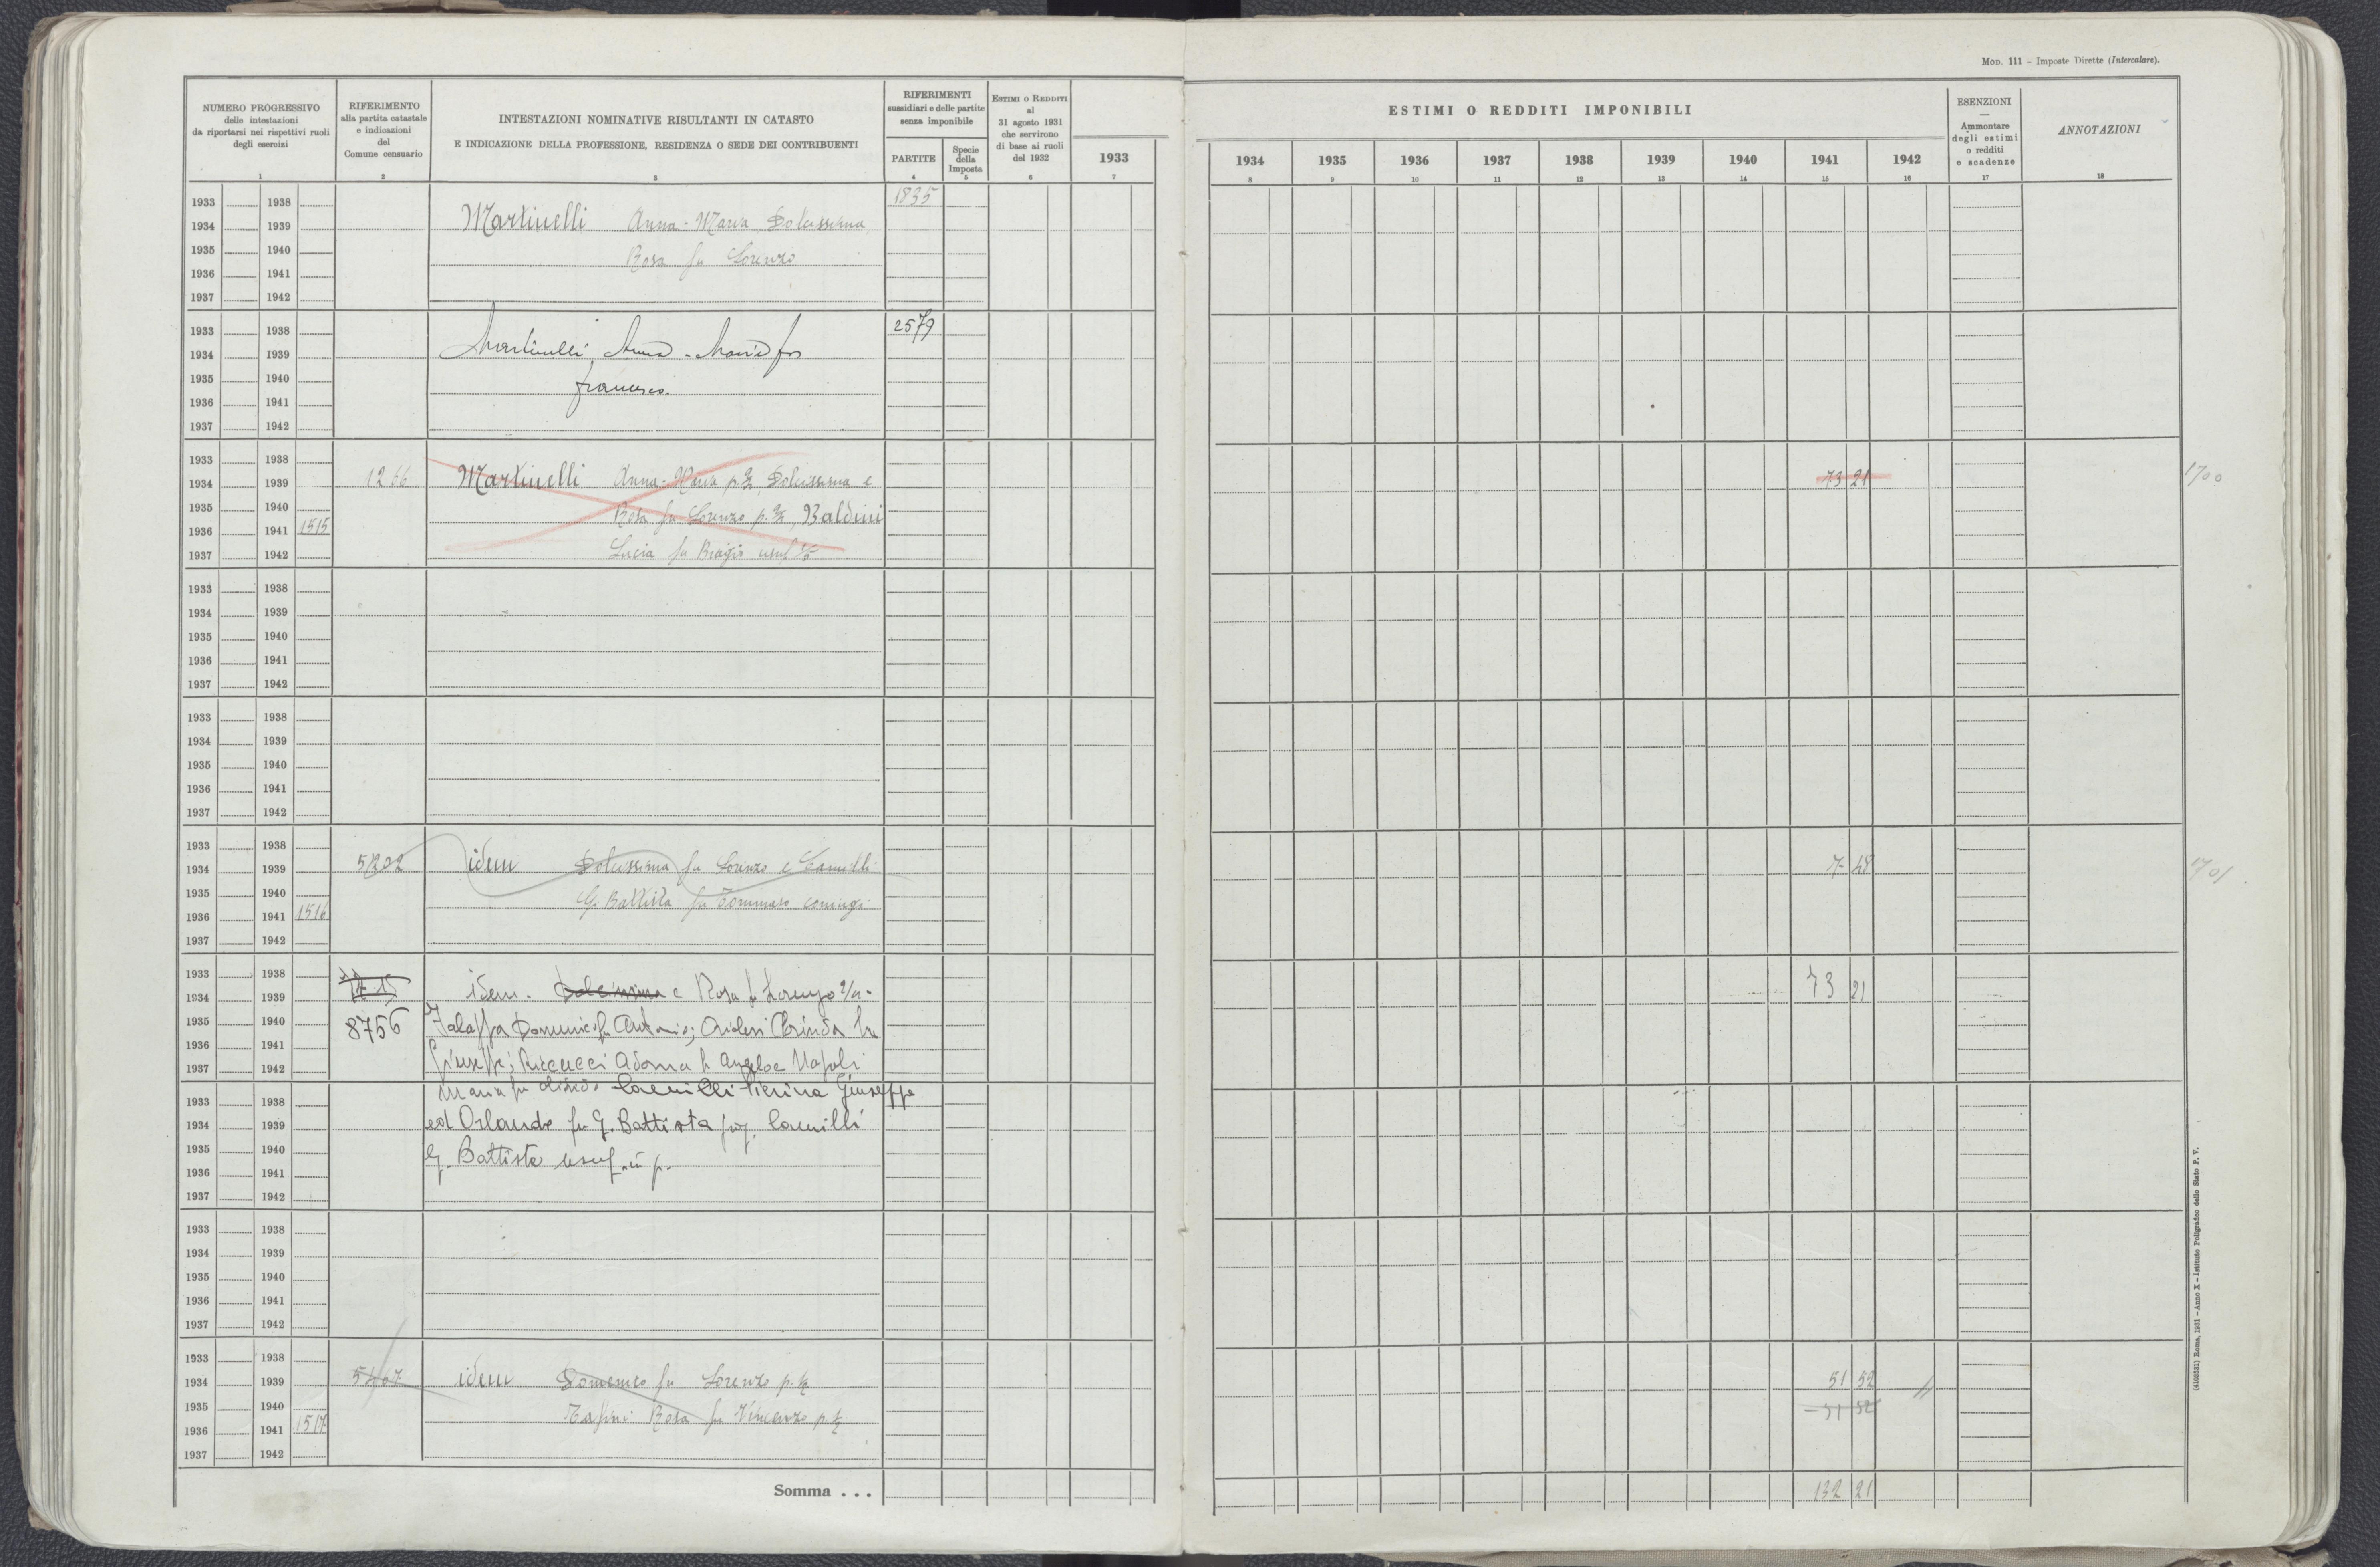 MOD. 111 - Imposte Dirette (Intercalare).
NUMERO PROGRESSIVO
delle intestazioni
da riportarsi nei rispettivi ruoli
degli esercizi
1
RIFERIMENTO
alla partita catastale
e indicazioni
del
Comune censuario
2
INTESTAZIONI NOMINATIVE RISULTANTI IN CATASTO
E INDICAZIONE DELLA PROFESSIONE, RESIDENZA O SEDE DEI CONTRIBUENTI
3
RIFERIMENTI
sussidiari e delle partite
senza imponibile
PARTITE
4
Specie
della
Imposta
5
ESTIMI O REDDITI
al
31 agosto 1931
che servirono
di base ai ruoli
del 1932
6
1933
7
ESTIMI O REDDITI IMPONIBILI
1934 1935 1936 1937 1938 1939 1940 1941 1942
8 9 10 11 12 13 14 15 16
ESENZIONI
—
Ammontare
degli estimi
o redditi
e scadenze
17
ANNOTAZIONI
18
1933 1938 1835
1934 1939 Martinelli Anna-Maria Dolcissima,
1935 1940 Rosa fu Lorenzo
1936 1941
1937 1942
1933 1938 2579
1934 1939 Martinelli Anna-Maria fu
1935 1940 Francesco.
1936 1941
1937 1942
1933 1938
1934 1939 1266 Martinelli Anna-Maria Dolcissima e 73 21 1700
1935 1940 Rosa fu Lorenzo, Baldini
1936 1941 1515
1937 1942 Lucia fu Biagio usuf
1933 1938
1934 1939
1935 1940
1936 1941
1937 1942
1933 1938
1934 1939
1935 1940
1936 1941
1937 1942
1933 1938
1934 1939 5202 idem Dolcissima fu Lorenzo e Camilli 7 48 1701
1935 1940 G. Battista fu Tommaso coniugi
1936 1941 1516
1937 1942
1933 1938
1934 1939 idem. Dolcissima e Rosa fu Lorenzo 73 21
1935 1940 8756 Domenico fu Antonio; Clorinda fu
1936 1941
1937 1942 Giuseppe; Riccucci Adorna fu Angelo e Napoli
Maria fu Camilli Pierina Giuseppe
1933 1938
1934 1939 ed Orlando fu G. Battista Camilli
1935 1940
1936 1941 G. Battista usuf. in p.
1937 1942
1933 1938
1934 1939
1935 1940
1936 1941
1937 1942
1933 1938
1934 1939 5467 idem Domenico fu Lorenzo p. 1/2 51 52
1935 1940 Rosa fu Vincenzo p. 1/2 - 51 52
1936 1941 1517
1937 1942
Somma . . . 132 21
(4103531) Roma, 1931 - Anno X - Istituto Poligrafico dello Stato P. V.